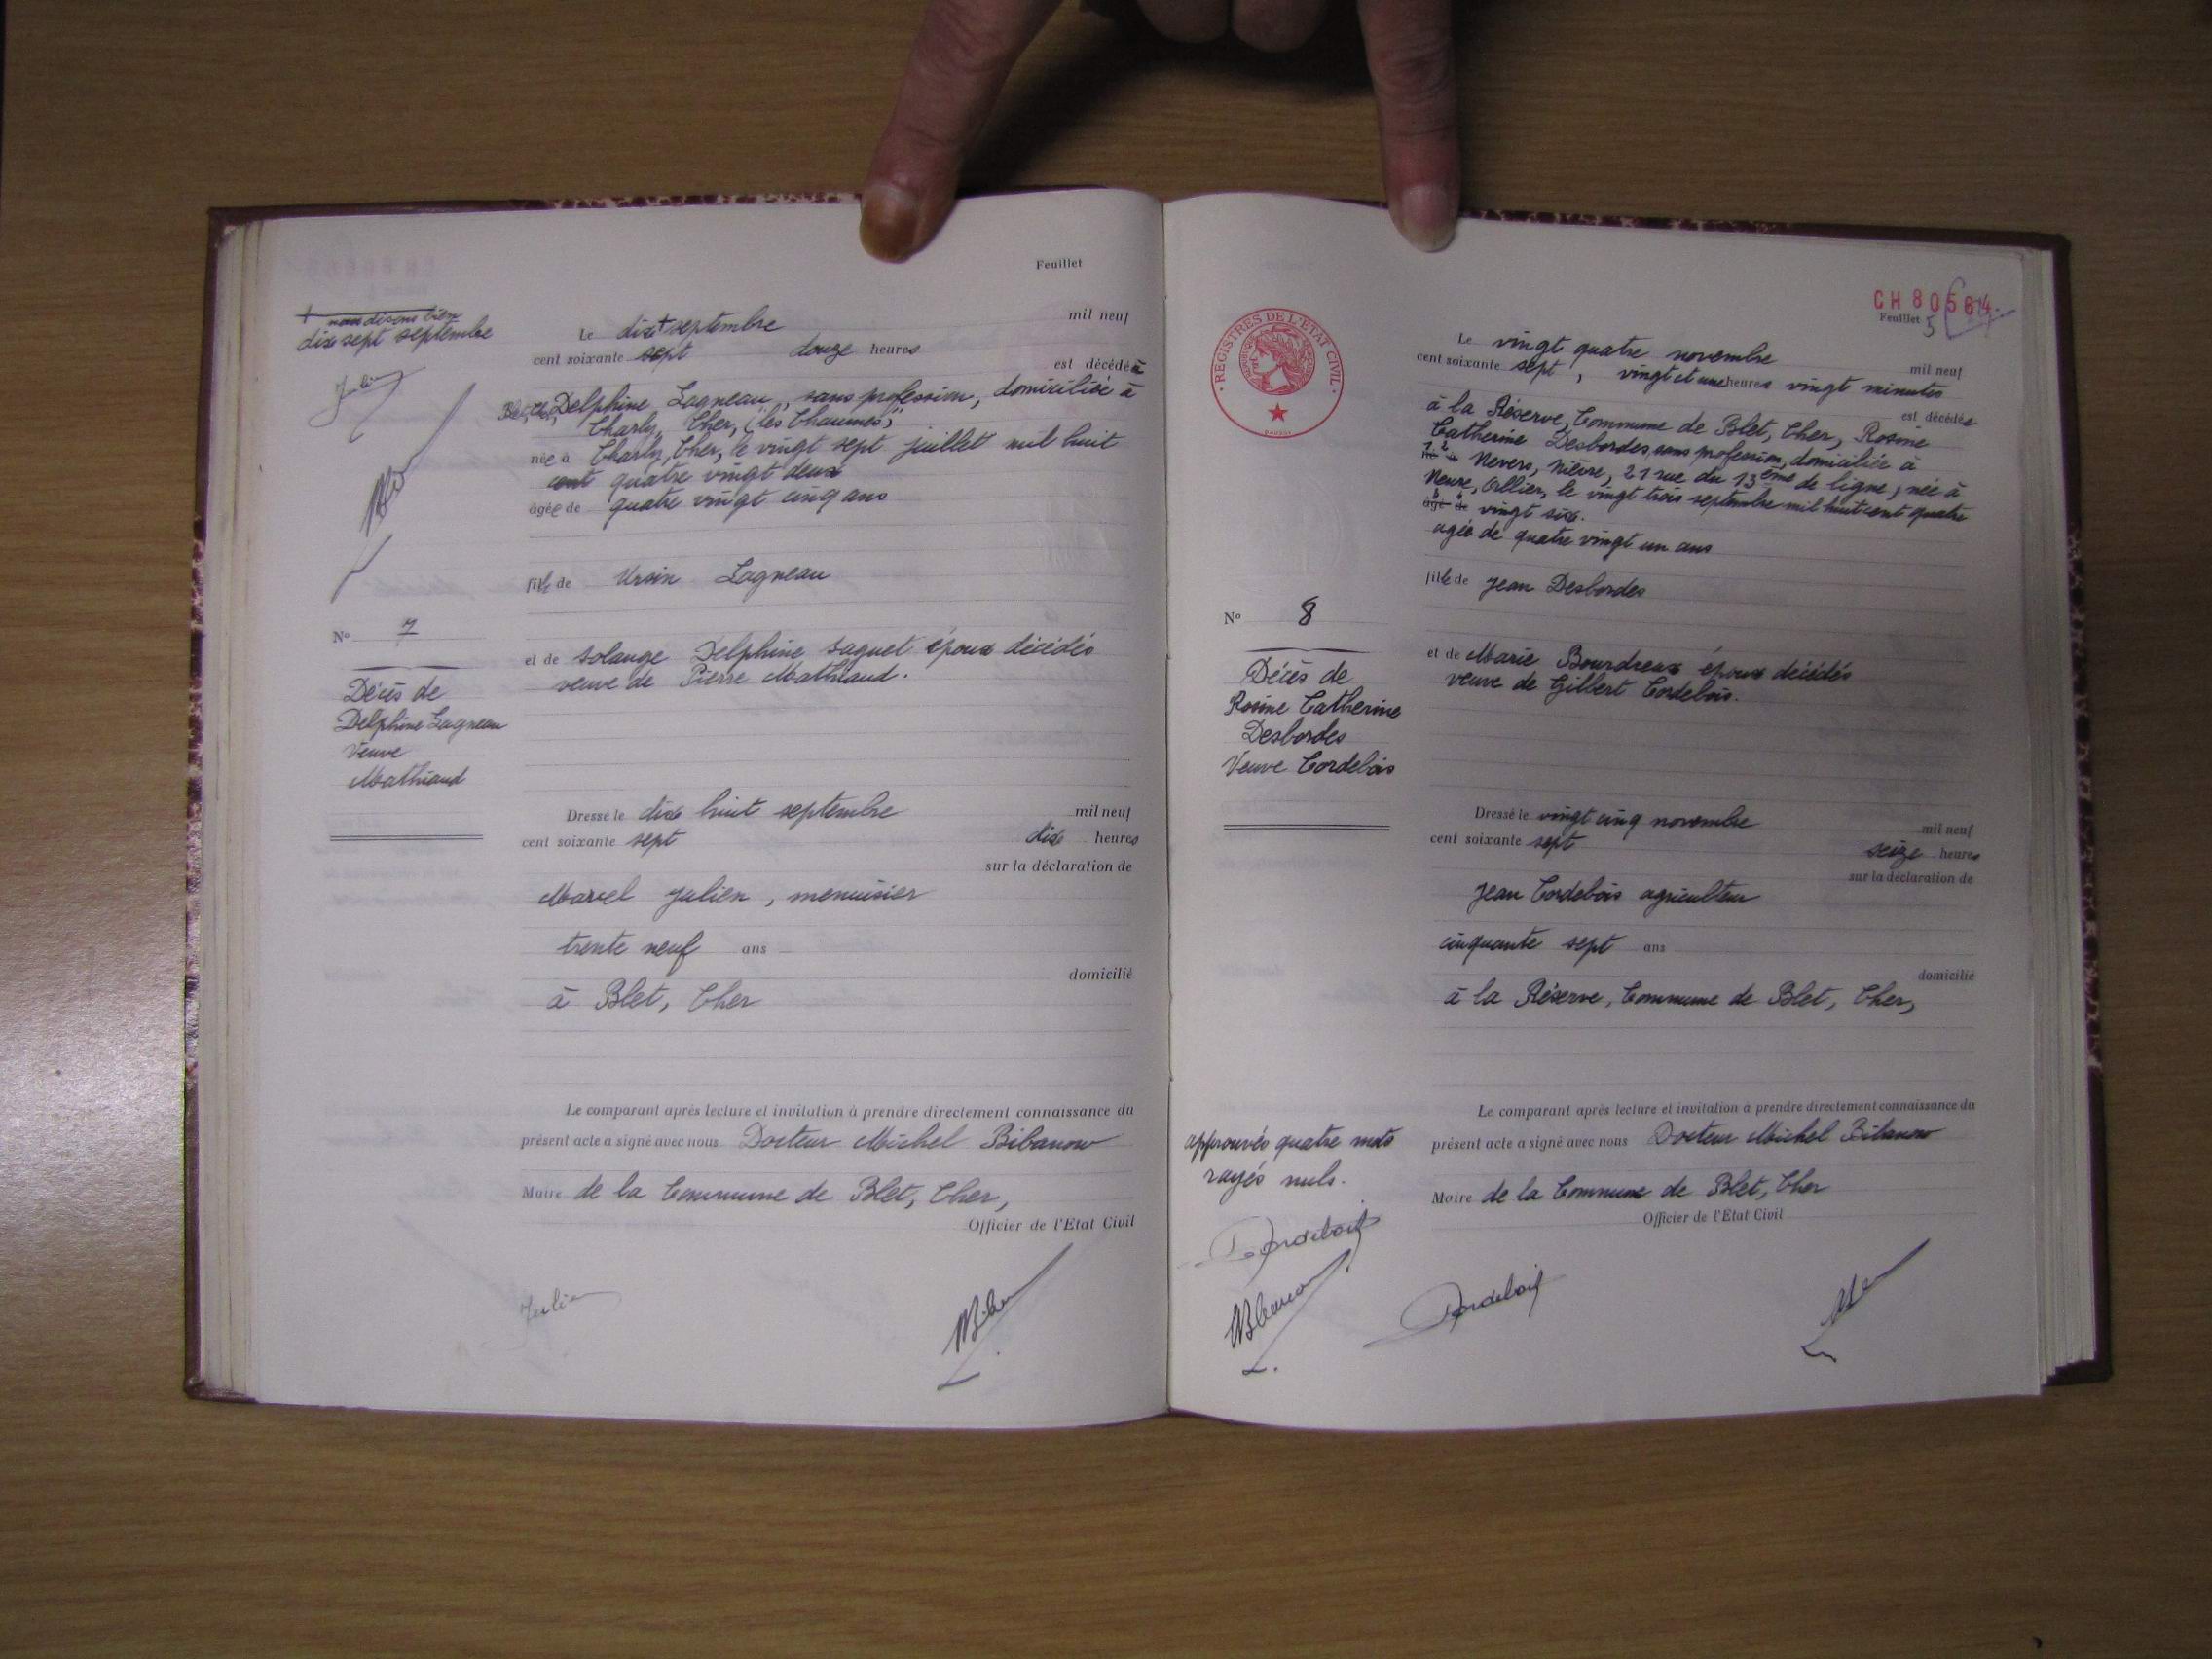 Feuillet
nous disons bien
dix sept septembre
Le dix + septembre mil neuf
cent soixante sept douze heures
est décédée à
Blet, Cher, Delphine Lagneau, sans profession, domiciliée à
Charly, Cher, "les Chaumes",
née à Charly, Cher, le vingt sept juillet mil huit
cent quatre vingt deux
âgée de quatre vingt cinq ans
fille de Ursin Lagneau
N° 7
et de Solange Delphine Saguet époux décédés
veuve de Pierre Mathiaud.
Décès de
Delphine Lagneau
Veuve
Mathiaud
Dressé le dix huit septembre mil neuf
cent soixante sept dix heures
sur la déclaration de
Marcel Julien, menuisier
trente neuf ans
domicilié
à Blet, Cher
Le comparant après lecture et invitation à prendre directement connaissance du
présent acte a signé avec nous Docteur Michel Bibanow
Maire de la Commune de Blet, Cher,
Officier de l'État Civil
Julien
REGISTRES DE L'ETAT CIVIL
CH 80564
Feuillet 5
Le vingt quatre novembre mil neuf
cent soixante sept, vingt et une heures vingt minutes
est décédée
à la Réserve, Commune de Blet, Cher, Rosine
Catherine Desbordes, sans profession, domiciliée à
Nevers, Nièvre, 21 rue du 13ème de ligne, née à
Neure, Allier, le vingt trois septembre mil huit cent quatre
vingt six.
agée de quatre vingt un ans
fille de Jean Desbordes
N° 8
et de Marie Bourdreux époux décédés
veuve de Gilbert Cordebois.
Décès de
Rosine Catherine
Desbordes
Veuve Cordebois
Dressé le vingt cinq novembre mil neuf
cent soixante sept seize heures
sur la déclaration de
Jean Cordebois agriculteur
cinquante sept ans
domicilié
à la Réserve, Commune de Blet, Cher,
Le comparant après lecture et invitation à prendre directement connaissance du
présent acte a signé avec nous Docteur Michel Bibanow
Maire de la Commune de Blet, Cher
Officier de l'État Civil
approuvés quatre mots
rayés nuls.
Cordebois
Cordebois